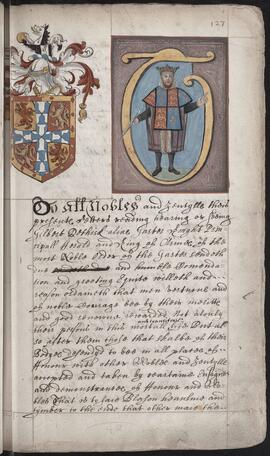 127
To All Nobles and Gentylls theis
presents Letters reading hearing or seeing
Gilbert Dethick alias Garter Knight Prin
cipall Herald and King of Armes of the
most Noble Order of the Garter sendeth
due and humble Comenda
tion and greeting Equite willeth and
reason ordaineth that men vertuous and
of noble Courage bee by their merits
and good renowne rewarded Not alonly
their persons in this mortall life But al
so after them those that shalbe of their
Bodyes to bee in all places of
Honour with other Nobles and Gentylls
accepted and taken by certaine Ensignes
and demonstrances of Honour and
That is to saie Blason heaulme and
tymber to the end that other maie